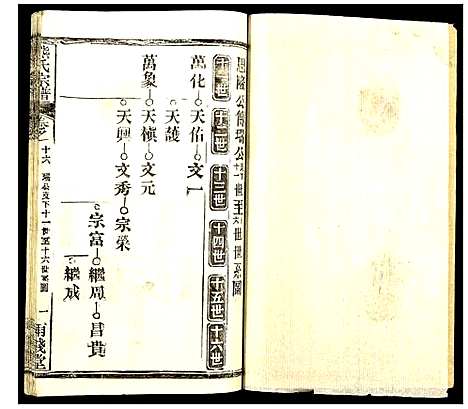 恩隆公傳瑞公十一世至十六世世系圖
十一世 十二世 十三世 十四世 十五世 十六世
萬化 天佑 文一
天護
萬象 天楨 文元
天興 文秀 宗榮
宗富 繼周 昌貴
繼成
氏宗譜 卷之 十六 瑞公支下十一世至十六世系圖 一 雨錢堂